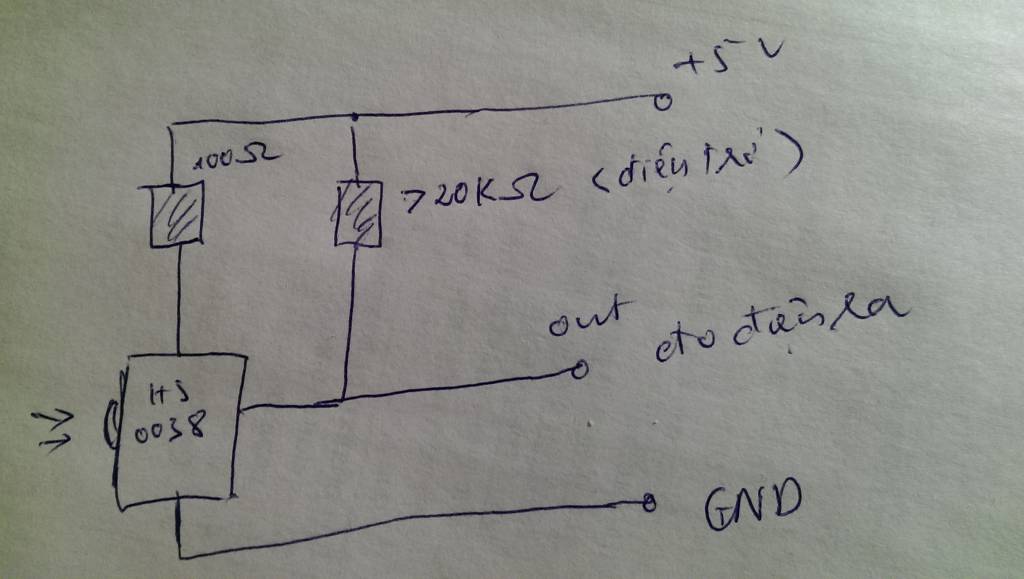 +5V
100Ω
>20KΩ (điện trở)
out đo điện ra
HS
0038
GND